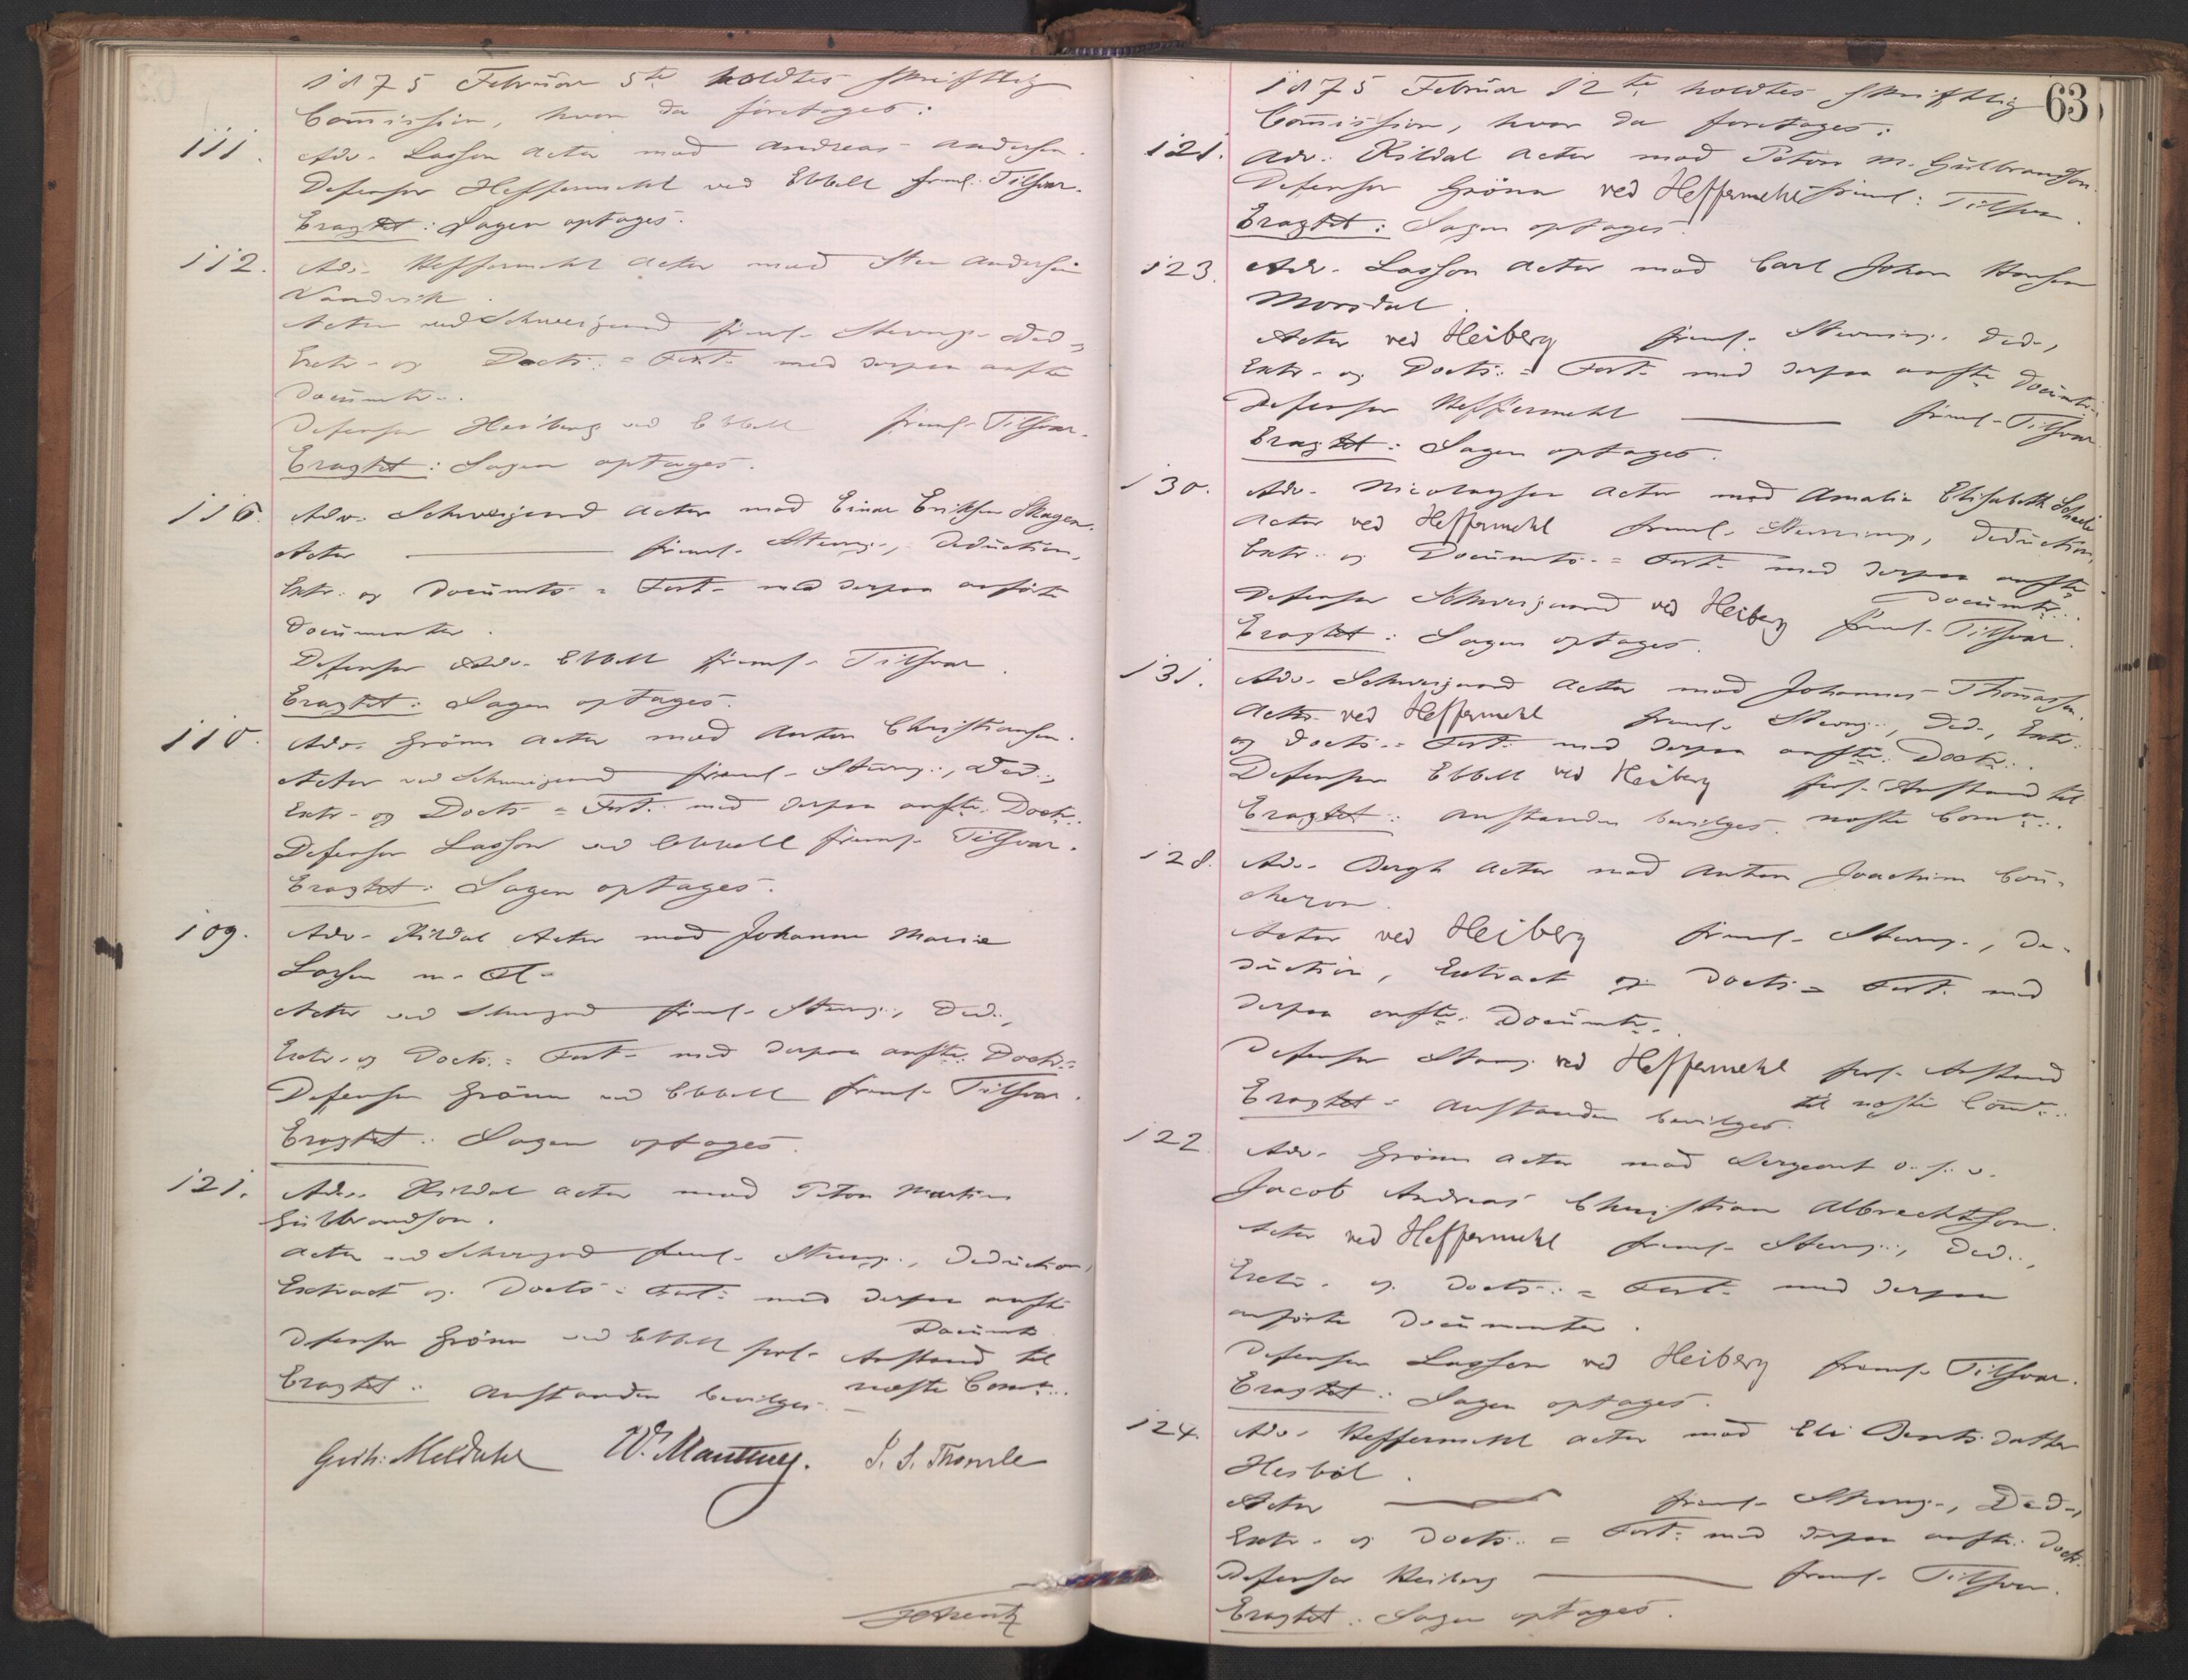 1875 Februar 5te holdtes skriftlig
Commission, hvor da foretoges:
111. Adv. Lasson Actor mod Andreas Andersen.
Defensor Heffermehl ved Ebbell freml. Tilsvar.
Eragtet: Sagen optages.
112. Adv. Heffermehl Actor mod Sten Andersen
Sandvik.
Actor ved Schweigaard freml. Stevng. Ded.,
Extr. og Docts. = Fort. med derpaa anfte
Documtr.
Defensor Heiberg ved Ebbell freml. Tilsvar.
Eragtet: Sagen optages.
116. Adv. Schweigaard Actor mod Einar Eriksen Skagen.
Actor — freml. Stevng., Deduction,
Extr. og Documts. = Fort. med derpaa anførte
Documenter.
Defensor Adv. Ebbell freml. Tilsvar.
Eragtet: Sagen optages.
110. Adv. Grönn Actor mod Anton Christiansen.
Actor ved Schweigaard freml. Stevng., Ded.,
Extr. og Docts. = Fort. med derpaa anfte. Doctr.
Defensor Lasson ved Ebbell freml. Tilsvar.
Eragtet: Sagen optages.
109. Adv. Kildal Actor mod Johanne Marie
Larsen m. Fl.
Actor ved Schweigaard freml. Stevng., Ded.,
Extr. og Docts. = Fort. med derpaa anfte. Doctr.
Defensor Grönn ved Ebbell freml. Tilsvar.
Eragtet: Sagen optages.
121. Adv. Kildal Actor mod Peter Martin
Gulbrandson.
Actor ved Schweigaard freml. Stevng., Deduction,
Extract og Docts. = Fort. med derpaa anfte
Documtr.
Defensor Grönn ved Ebbell forl. Anstand til
næste Comn.
Eragtet: Anstanden bevilges.
W. Manthey.
63
1875 Februar 12te holdtes skriftlig
Commission, hvor da foretoges:
121. Adv. Kildal Actor mod Peter M. Gulbrandson.
Defensor Grönn ved Heffermehl freml. Tilsvar.
Eragtet: Sagen optages.
123. Adv. Lasson Actor mod Carl Johan Hansen
Morsdal.
Actor ved Heiberg freml. Stevning. Ded.,
Extr. og Docts. = Fort. med derpaa anfte Documtr.
Defensor Heffermehl — freml. Tilsvar.
Eragtet: Sagen optages.
130. Adv. Nicolaysen Actor mod Amalie Elisabeth
Actor ved Heffermehl freml. Stevning, Deduction,
Extr. og Documts. = Fort. med derpaa anfte
Documtr.
Defensor Schweigaard ved Heiberg freml. Tilsvar.
Eragtet: Sagen optages.
131. Adv. Schweigaard Actor mod Johannes Thomassen.
Actor ved Heffermehl freml. Stevng., Ded., Extr.
og Docts. = Fort. med derpaa anfte. Doctr.
Defensor Ebbell ved Heiberg forl. Anstand til
næste Comn.
Eragtet: Anstanden bevilges.
128. Adv. Bergh Actor mod Anton Joachim Cou-
cheron.
Actor ved Heiberg freml. Stevng., De-
duction, Extract og Docts. = Fort. med
derpaa anfte. Documtr.
Defensor Stang ved Heffermehl forl. Anstand
til næste Comn.
Eragtet: Anstanden bevilges.
122. Adv. Grönn Actor mod Sergeant
Jacob Andreas Christian Albrechtson.
Actor ved Heffermehl freml. Stevng., Ded.,
Extr. og Docts. = Fort. med derpaa
anførte Documenter.
Defensor Lasson ved Heiberg freml. Tilsvar.
Eragtet: Sagen optages.
124. Adv. Heffermehl Actor mod Eli Berntsdatter
Hesböl.
Actor — freml. Stevng., Ded.,
Extr. og Docts. = Fort. med derpaa anfte. Doctr.
Defensor Heiberg — freml. Tilsvar.
Eragtet: Sagen optages.